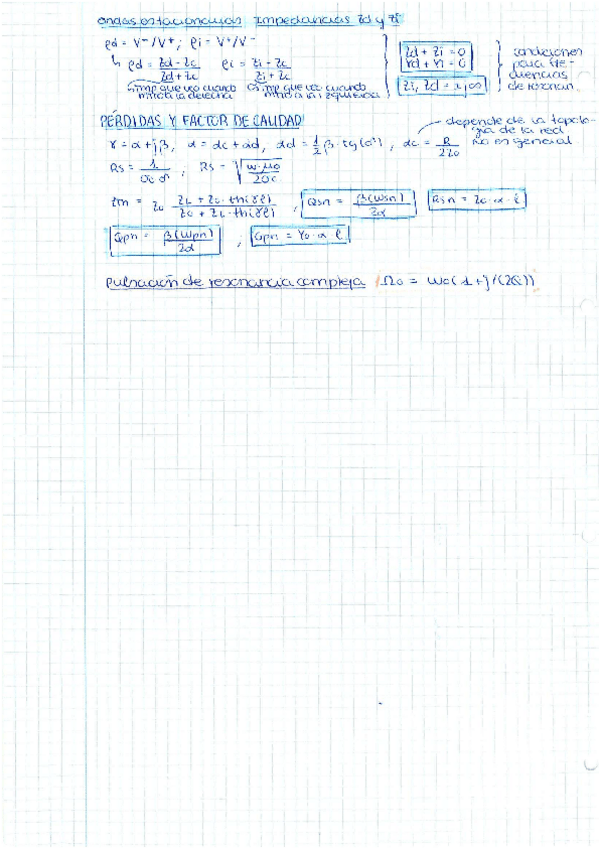 Ondas estacionarias Impedancias Zd y Zi
ρd = V⁻/V⁺; ρi = V⁺/V⁻
↳ ρd = (Zd - Zc)/(Zd + Zc) ρi = (Zi - Zc)/(Zi + Zc)
imp que veo cuando miro a la derecha imp que veo cuando miro a la izquierda
Zd + Zi = 0
Yd + Yi = 0
Zi, Zd = ∞
condiciones
para fre-
cuencias
de resonan.
PÉRDIDAS Y FACTOR DE CALIDAD
γ = α + jβ, α = αc + αd, αd = 1/2 β · tg(δ), αc = R/2Z0
depende de la topolo-
gía de la red
No en general
Rs = 1/(σc δ) ; Rs = √(ω·μ0/2σc)
Zin = Z0 (ZL + Z0 · th(γl))/(Z0 + ZL · th(γl)), Qsn = β(ωsn)/2α Rsn = Z0 · α · l
Qpn = β(ωpn)/2α , Gpn = Y0 · α · l
Pulsación de resonancia compleja Ω0 = ω0(1 + j/(2Q))